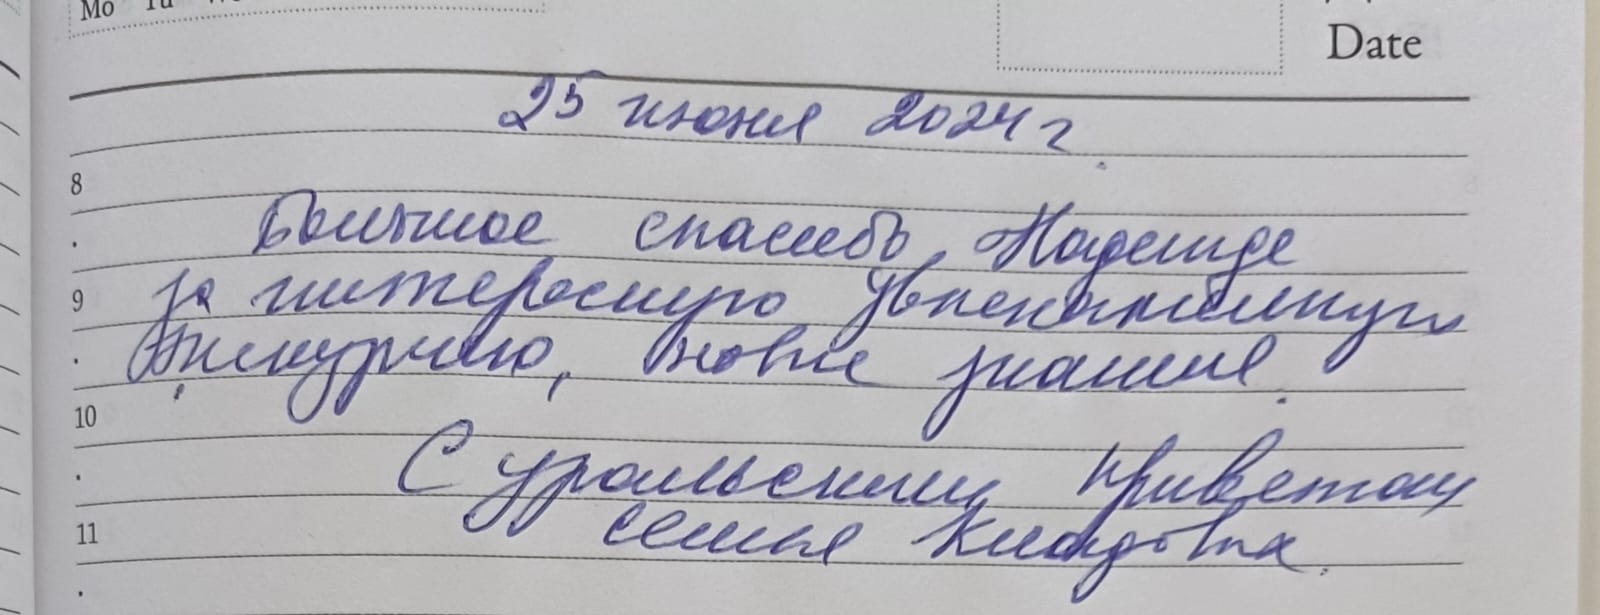 Mo Tu
Date
25 июня 2024 г.
8
Большое спасибо, Надежде
9 за интересную увлекательную
экскурсию, новые знания.
10
С уральским приветом
11 семья